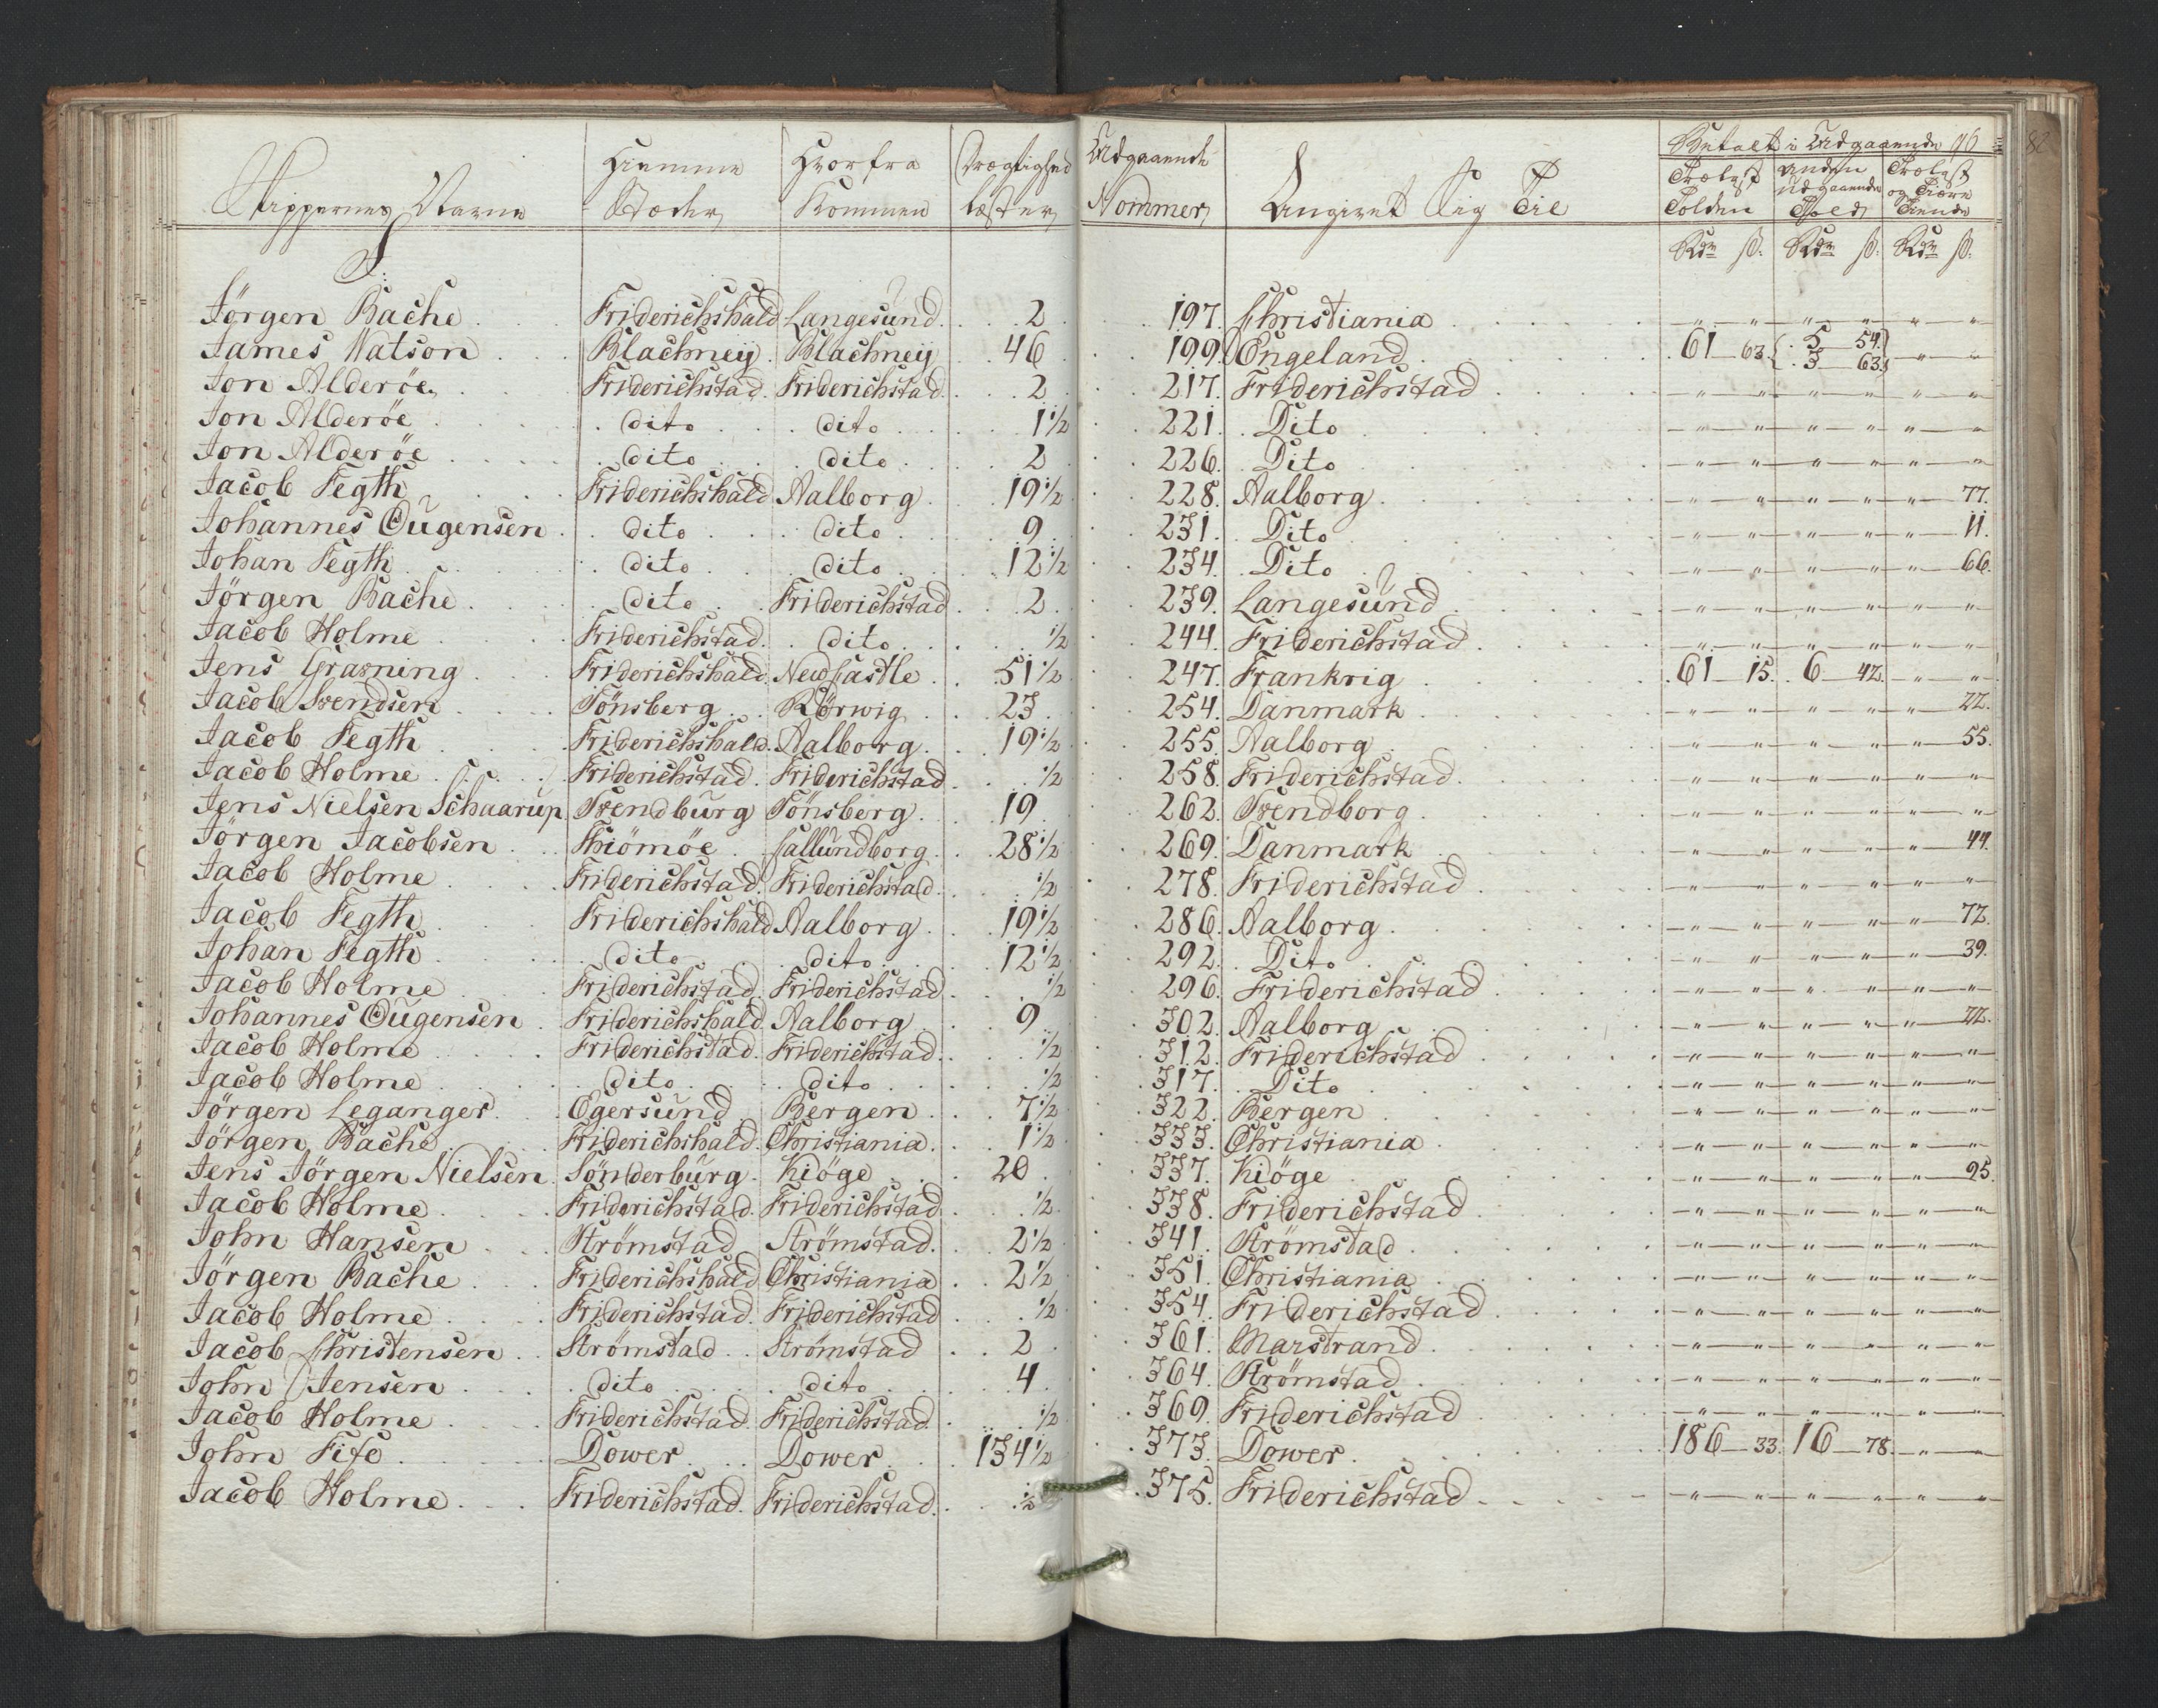 Skippernes Navne | Hiemme Stæder | Hvorfra Kommen | Drægtighed Læster | Udgaaende Nommer | Angivet Sig Til | Betalt i Udgaaende
Trælast Tolden | Anden Udgaaende Told | Trælast og Tiære Tiende
Rdr ß. | Rdr ß. | Rdr ß.
J:
Jörgen Bache | Friderichshald | Langesund | 2 | 197. | Christiania | " " | " " | " "
James Watson | Blachneÿ | Blachneÿ | 46 | 199. | Engeland | 61 63. | 5 54. 3 63. | " "
Jon Alderöe | Friderichstad | Friderichstad | 2 | 217. | Friderichstad | " " | " " | " "
Jon Alderöe | dito | dito | 1½ | 221. | Dito | " " | " " | " "
Jon Alderöe | dito | dito | 2 | 226. | Dito | " " | " " | " "
Jacob Fegth | Friderichshald | Aalborg | 19½ | 228. | Aalborg | " " | " " | " 77.
Johannes Ougensen | dito | dito | 9 | 231. | Dito | " " | " " | " 11.
Johan Fegth | dito | dito | 12½ | 234. | Dito | " " | " " | " 66.
Jörgen Bache | dito | Friderichstad | 2 | 239. | Langesund | " " | " " | " "
Jacob Holme | Friderichstad | dito | ½ | 244. | Friderichstad | " " | " " | " "
Jens Grøning | Friderichshald | New Castle | 51½ | 247. | Frankrig | 61 15. | 6 42. | " "
Jacob Svendsen | Tönsberg | Rörwig | 23 | 254. | Danmark | " " | " " | " 22.
Jacob Fegth | Friderichshald | Aalborg | 19½ | 255. | Aalborg | " " | " " | " 55.
Jacob Holme | Friderichstad | Friderichstad | ½ | 258. | Friderichstad | " " | " " | " "
Jens Nielsen Schaarup | Svendburg | Tönsberg | 19 | 262. | Svendborg | " " | " " | " "
Jörgen Jacobsen | Thiömöe | Callundborg | 28½ | 269. | Danmark | " " | " " | " 44.
Jacob Holme | Friderichstad | Friderichstad | ½ | 278. | Friderichstad | " " | " " | " "
Jacob Fegth | Friderichshald | Aalborg | 19½ | 286. | Aalborg | " " | " " | " 72.
Johan Fegth | dito | dito | 12½ | 292. | Dito | " " | " " | " 39.
Jacob Holme | Friderichstad | Friderichstad | ½ | 296. | Friderichstad | " " | " " | " "
Johannes Ougensen | Friderichshald | Aalborg | 9 | 302. | Aalborg | " " | " " | " 22.
Jacob Holme | Friderichstad | Friderichstad | ½ | 312. | Friderichstad | " " | " " | " "
Jacob Holme | dito | dito | ½ | 317. | Dito | " " | " " | " "
Jörgen Leganger | Egersund | Bergen | 7½ | 322. | Bergen | " " | " " | " "
Jörgen Bache | Friderichshald | Christiania | 1½ | 333. | Christiania | " " | " " | " "
Jens Jörgen Nielsen | Sönderburg | Kiöge | 20 | 337. | Kiöge | " " | " " | " 95.
Jacob Holme | Friderichstad | Friderichstad | ½ | 338. | Friderichstad | " " | " " | " "
John Hansen | Strömstad | Strömstad | 2½ | 341. | Strömstad | " " | " " | " "
Jörgen Bache | Friderichshald | Christiania | 2½ | 351. | Christiania | " " | " " | " "
Jacob Holme | Friderichstad | Friderichstad | ½ | 354. | Friderichstad | " " | " " | " "
Jacob Christensen | Strömstad | Strömstad | 2 | 361. | Marstrand | " " | " " | " "
John Jensen | dito | dito | 4 | 364. | Strömstad | " " | " " | " "
Jacob Holme | Friderichstad | Friderichstad | ½ | 369. | Friderichstad | " " | " " | " "
John Fife | Dower | Dower | 134½ | 373. | Dower | 186 33. | 16 78. | " "
Jacob Holme | Friderichstad | Friderichstad | ½ | 375. | Friderichstad | " " | " " | " "